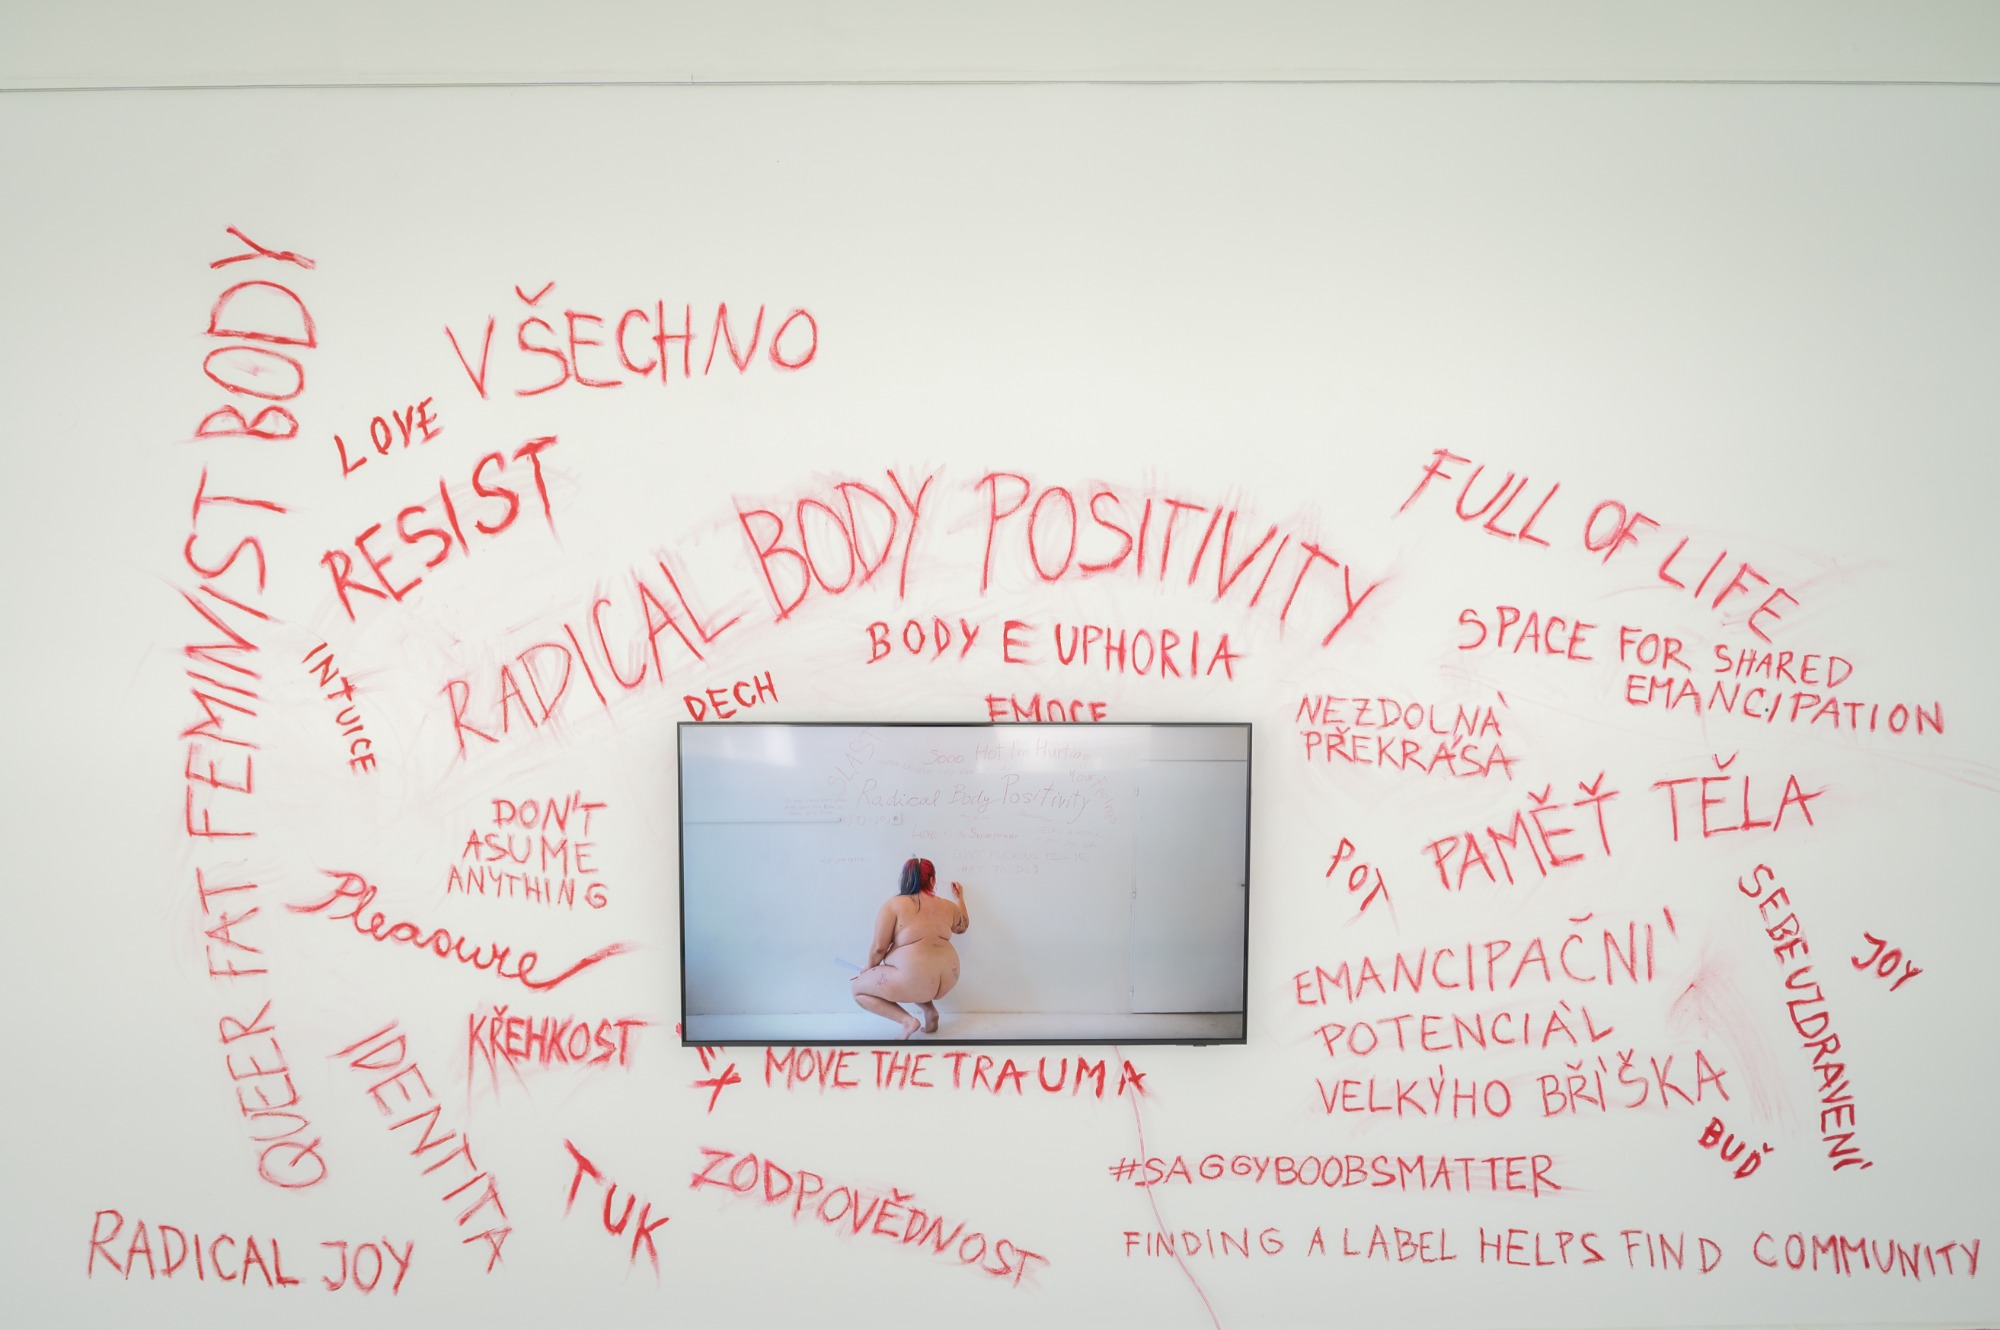 QUEER FAT FEMINIST BODY
VŠECHNO
LOVE
RESIST
RADICAL BODY POSITIVITY
FULL OF LIFE
BODY EUPHORIA
SPACE FOR SHARED
EMANCIPATION
INTUICE
DECH
EMOCE
NEZDOLNÁ
PŘEKRÁSA
DON'T
ASUME
ANYTHING
Sooo Hot I'm Hurting
Radical Body Positivity
PAMĚŤ TĚLA
POT
Pleasure
SEBEUZDRAVENÍ
JOY
EMANCIPAČNÍ
POTENCIÁL
VELKÝHO BŘÍŠKA
KŘEHKOST
IDENTITA
MOVE THE TRAUMA
BUĎ
TUK
ZODPOVĚDNOST
#SAGGYBOOBSMATTER
RADICAL JOY
FINDING A LABEL HELPS FIND COMMUNITY